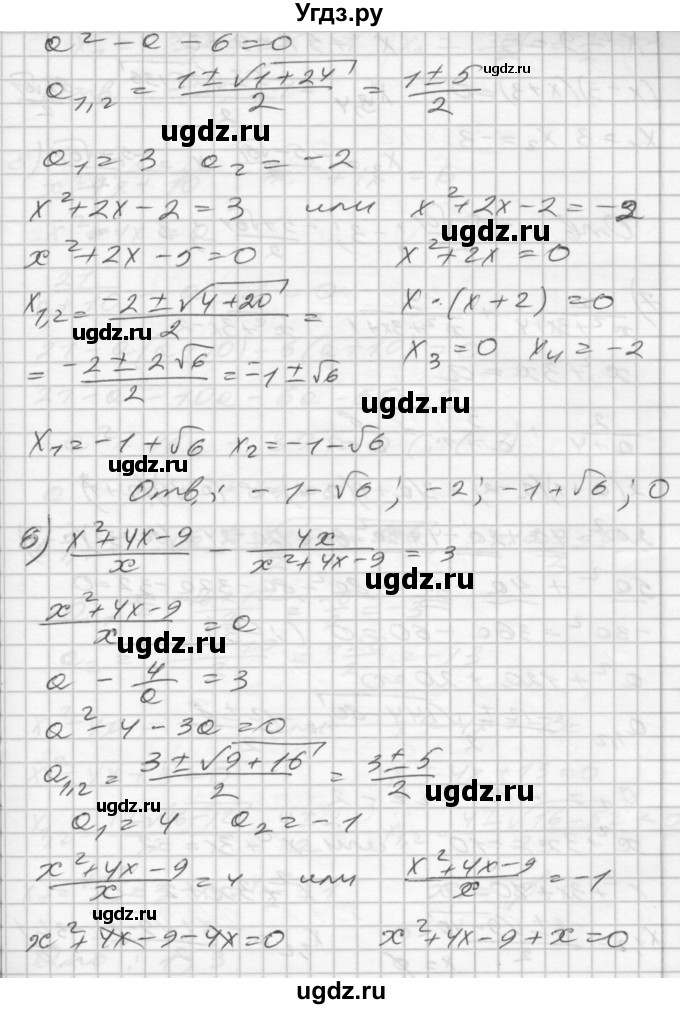 Угдз.ру
a² - a - 6 = 0
a₁,₂ = (1 ± √(1 + 24)) / 2 = (1 ± 5) / 2
ugdz.ru
ugdz.ru
a₁ = 3 a₂ = -2
x² + 2x - 2 = 3 или x² + 2x - 2 = -2
ugdz.ru
x² + 2x - 5 = 0 x² + 2x = 0
x₁,₂ = (-2 ± √(4 + 20)) / 2 = x · (x + 2) = 0
ugdz.ru
= (-2 ± 2√6) / 2 = -1 ± √6 x₃ = 0 x₄ = -2
ugdz.ru
x₁ = -1 + √6 x₂ = -1 - √6
ugdz.ru
Отв.: -1 - √6; -2; -1 + √6; 0
б) (x² + 4x - 9) / x - 4x / (x² + 4x - 9) = 3
ugdz.ru
(x² + 4x - 9) / x = a
ugdz.ru
a - 4/a = 3
a² - 4 - 3a = 0
a₁,₂ = (3 ± √(9 + 16)) / 2 = (3 ± 5) / 2
ugdz.ru
ugdz.ru
a₁ = 4 a₂ = -1
(x² + 4x - 9) / x = 4 или (x² + 4x - 9) / x = -1
ugdz.ru
x² + 4x - 9 - 4x = 0 x² + 4x - 9 + x = 0
ugdz.ru